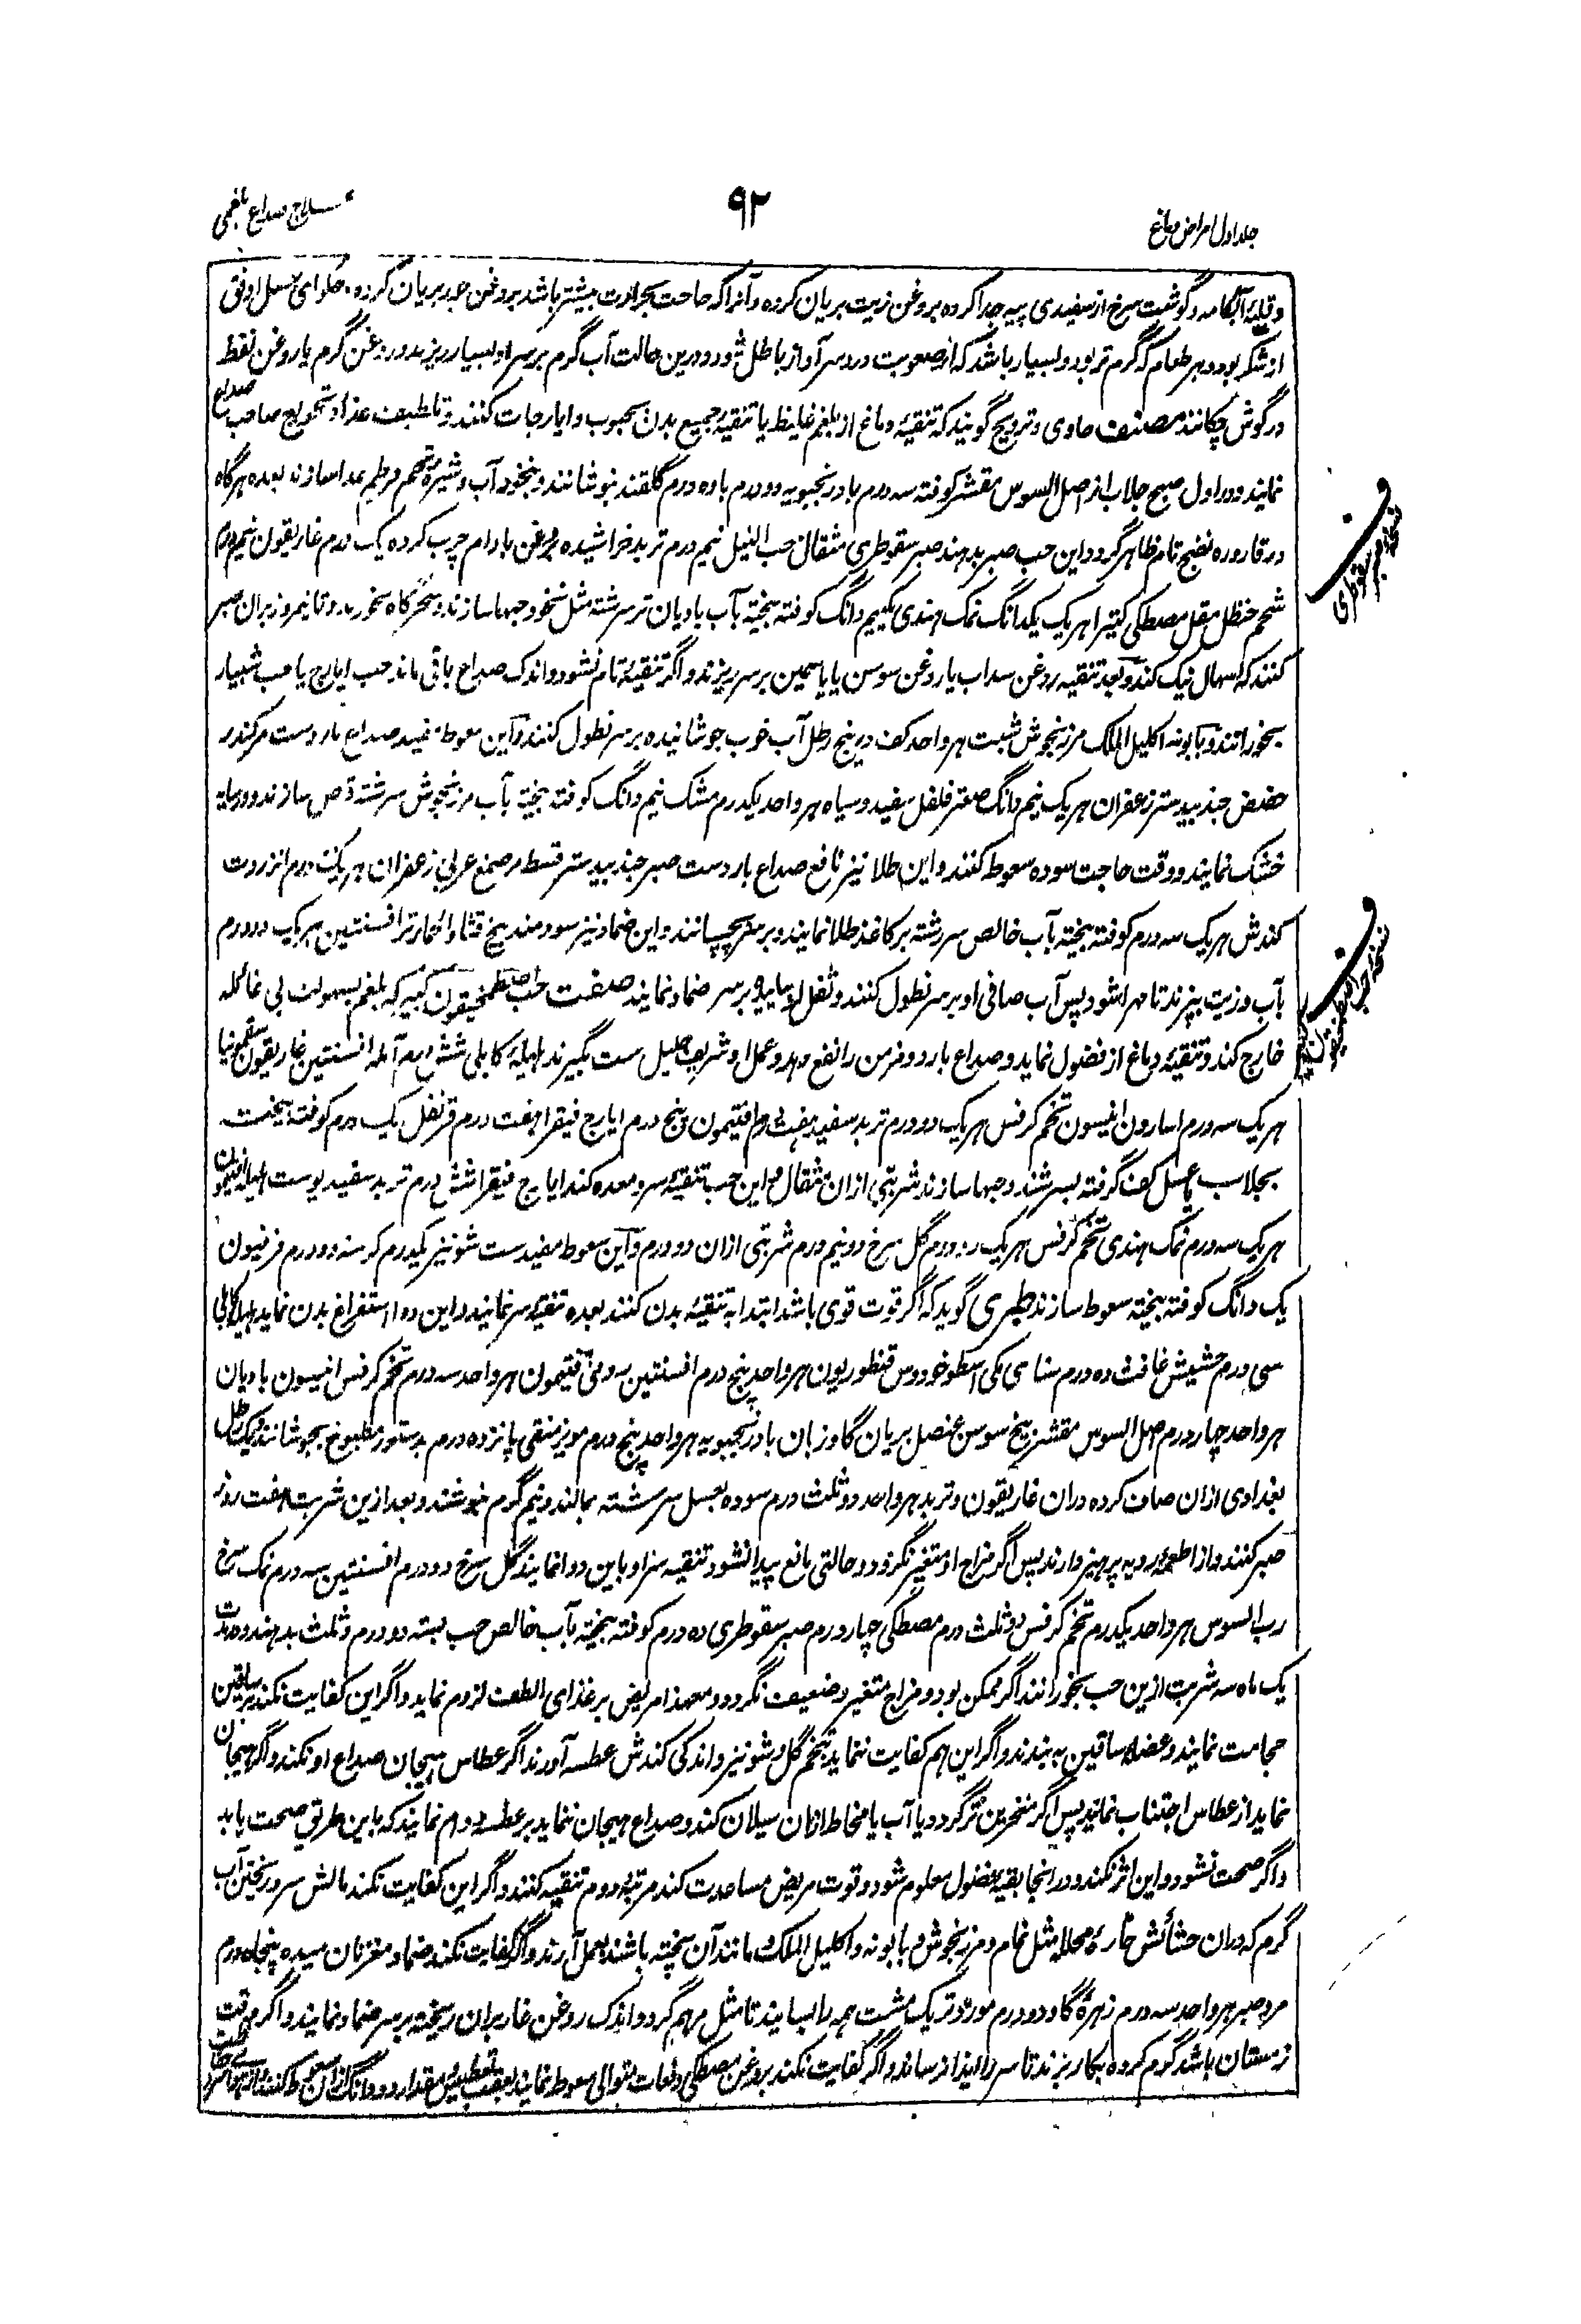 جلد اول امراض دماغ
۹۲
علاج صداع بلغمی
و قلیهٔ آبکامه و گوشت سرخ از سفیدی پیه جدا کرده بروغن زیت بریان کرده و آنرا که حاجت بحرارت بیشتر باشد بروغن بریان کرده حلوای عسل اوفق
از شکر بود و هر طعام که گرم تر بود و بسیار باشد که از صعوبت درد سر آواز باطل شود و درین حالت آب گرم بر سر او بسیار ریزند و روغن گرم یا روغن نفط
در گوش چکانند مصنف حاوی و ترویح گویند که تنقیهٔ دماغ از بلغم غلیظ یا تنقیهٔ جمیع بدن بحبوب و ایارجات کنند و تلطیف غذا و تجویع صاحب صداع
نمایند و در اول صبح جلاب از اصل السوس مقشر کوفته سه درم بادرنجبویه دو درم با ده درم گلقند بنوشانند و بنخود آب و شیرهٔ تخم قرطم غدا سازند بعده هرگاه
در قاروره نضج تام ظاهر گردد این حب صبر بدهند صبر سقوطری مثقال حب النیل نیم درم تربد خراشیده بروغن بادام چرب کرده یک درم غاریقون نیم درم
شحم حنظل مقل مصطکی کتیرا هر یک یکدانگ نمک هندی یکنیم دانگ کوفته بیخته بآب بادیان تر سرشته مثل نخود حبها سازند و سحرگاه بخورند و تا نیمروز بران صبر
کنند که اسهال نیک کند و بعد تنقیه روغن سداب یا روغن سوسن یا یاسمین بر سر ریزند و اگر تنقیهٔ تام نشود و اندک صداع باقی ماند حب ایارج یا حب شبیار
بخورانند و بابونه اکلیل الملک مرزنجوش شبت هر واحد کف در پنج رطل آب خوب جوشانیده بر سر نطول کنند و این سعوط مفید صداع بارد ست مر کندر
حضض جندبیدستر زعفران هر یک نیم دانگ صعتر فلفل سفید و سیاه هر واحد یکدرم مشک نیم دانگ کوفته بیخته بآب مرزنجوش سرشته قرص سازند و در سایه
خشک نمایند و وقت حاجت سوده سعوط کنند و این طلا نیز نافع صداع بارد ست صبر جندبیدستر قسط مر صمغ عربی زعفران هر یک درم انزروت
کندش هر یک سه درم کوفته بیخته بآب خالص سرشته بر کاغذ طلا نمایند و بر سر بچسپانند و این ضماد نیز سودمند بیخ قثاء الحمار تر افسنتین هر یک دو درم
بآب و زیت بپزند تا مهرا شود پس آب صافی او بر سر نطول کنند و ثفل او سائیده بر سر ضماد نمایند صفت حب اصطمخیقون کبیر که بلغم بسهولت بی غائله
خارج کند و تنقیهٔ دماغ از فضول نماید و صداع بارد و مزمن را نفع دهد و عمل او شریف جلیل ست بگیرند هلیلهٔ کابلی شش درم آمله افسنتین غاریقون سقمونیا
هر یک سه درم اسارون انیسون تخم کرفس هر یک دو درم تربد سفید هفت درم افتیمون پنج درم ایارج فیقرا هفت درم قرنفل یک درم کوفته بیخت
بجلاب یا عسل کف گرفته بسرشند و حبها سازند شربتی ازان مثقال و این حب تنقیهٔ سر و معده کند ایارج فیقرا شش درم تربد سفید پوست هلیله افتیمون
هر یک سه درم نمک هندی تخم کرفس هر یک دو درم گل سرخ دو نیم درم شربتی ازان دو درم و این سعوط مفیدست شونیز یکدرم کرسنه دو درم فرفیون
یک دانگ کوفته بیخته سعوط سازند طبری گوید که اگر قوت قوی باشد ابتدا به تنقیه بدن کنند بعده تنقیه سر نمایند و این دوا استفراغ بدن نماید هلیلهٔ کابلی
سی درم حشیش غافث ده درم سنای مکی اسطوخودوس قنطوریون هر واحد پنج درم افسنتین رومی افتیمون هر واحد سه درم تخم کرفس انیسون بادیان
هر واحد چار درم اصل السوس مقشر بیخ سوسن عنصل بریان گاو زبان بادرنجبویه هر واحد پنج درم مویز منقی پانزده درم بدستور مطبوخ بجوشانند و یک رطل
بغدادی ازان صاف کرده دران غاریقون و تربد هر واحد دو ثلث درم سوده بعسل سرشته بمالند و نیم گرم بنوشند و بعد ازین شربت هفت روز
صبر کنند و از اطعمهٔ ردیه پرهیز دارند پس اگر مزاج او متغیر نگردد و حالتی مانع پیدا نشود تنقیه سر او باین دوا نمایند گل سرخ دو درم افسنتین سه درم نمک سرخ
رب السوس هر واحد یکدرم تخم کرفس دو ثلث درم مصطکی چار درم صبر سقوطری ده درم کوفته بیخته بآب خالص حب بسته دو درم و ثلث بدهند و در مدت
یک ماه سه شربت ازین حب بخورانند اگر ممکن بود و مزاج متغیر و ضعیف نگردد و معهذا مریض بر غذای الطف لزوم نماید و اگر این کفایت نکند بر ساقین
حجامت نمایند و عضلهٔ ساقین به بندند و اگر این هم کفایت ننماید بتخم گل و شونیز و اندکی کندش عطسه آورند اگر عطاس هیجان صداع او نکند و اگر هیجان
نماید از عطاس اجتناب نمایند پس اگر منخرین تر گردد و یا آب یا مخاط ازان سیلان کند و صداع هیجان ننماید بر عطسه دوام نمایند که باین طریق صحت یابد
و اگر صحت نشود و این اثر نکند و در آنجا بقیهٔ فضول معلوم شود و قوت مریض مساعدت کند مرتبهٔ دوم تنقیه کنند و اگر این کفایت نکند مالش سر و ریختن آب
گرم که دران حشائش حارهٔ محلله مثل نمام و مرزنجوش و بابونه و اکلیل الملک و مانند آن پخته باشند بعمل آرند و اگر کفایت نکند ضماد مغز نان میده پنجاه درم
مر و صبر هر واحد سه درم زهرهٔ گاو دو درم مورد تر یک مشت همه را بسایند تا مثل مرهم گردد و اندک روغن غار بران ریخته بر سر ضماد نمایند و اگر وقت
زمستان باشد گرم کرده بکار برند تا سر را ایذا نرساند و اگر کفایت نکند بروغن مصطکی دفعات متوالی سعوط نمایند
نسخه حب صبر سقوطری
نسخه حب اصطمخیقون کبیر